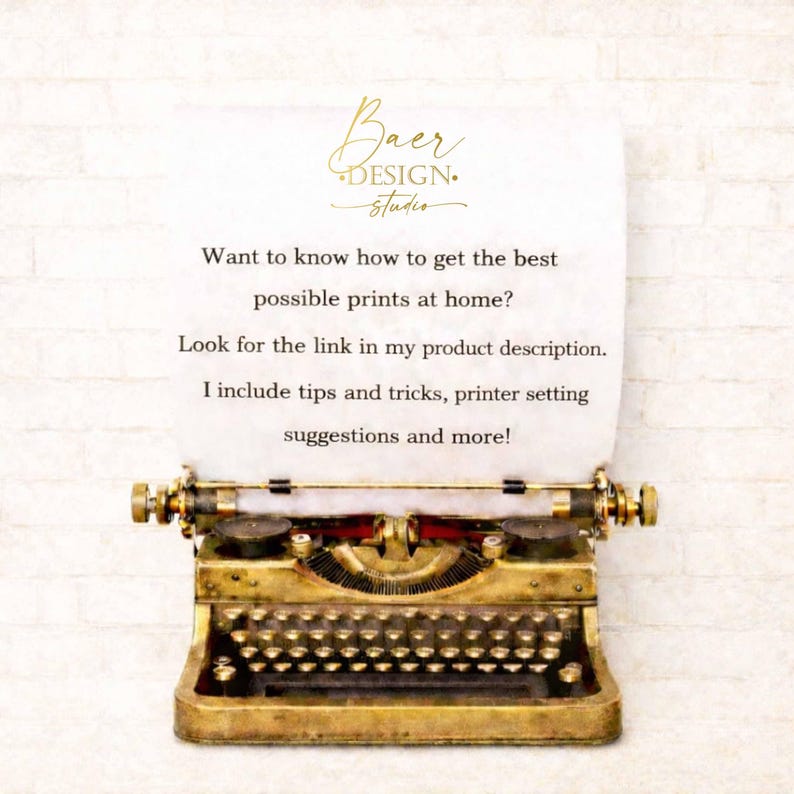 Baer
•DESIGN•
studio
Want to know how to get the best
possible prints at home?
Look for the link in my product description.
I include tips and tricks, printer setting
suggestions and more!